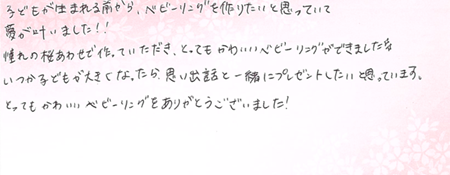 子どもが生まれる前から、ベビーリングを作りたいと思っていて
夢が叶いました!!
憧れの桜あわせで作っていただき、とってもかわいいベビーリングができました
いつか子どもが大きくなったら、思い出話と一緒にプレゼントしたいと思っています。
とってもかわいいベビーリングをありがとうございました!